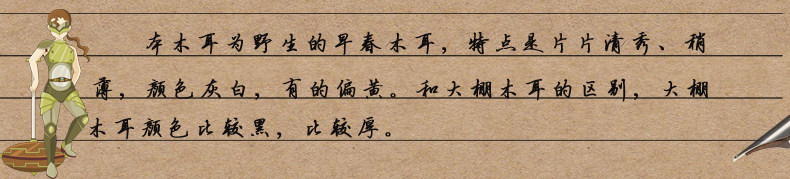 本木耳为野生的早春木耳，特点是片片清秀、稍
薄，颜色灰白，有的偏黄。和大棚木耳的区别，大棚
木耳颜色比较黑，比较厚。